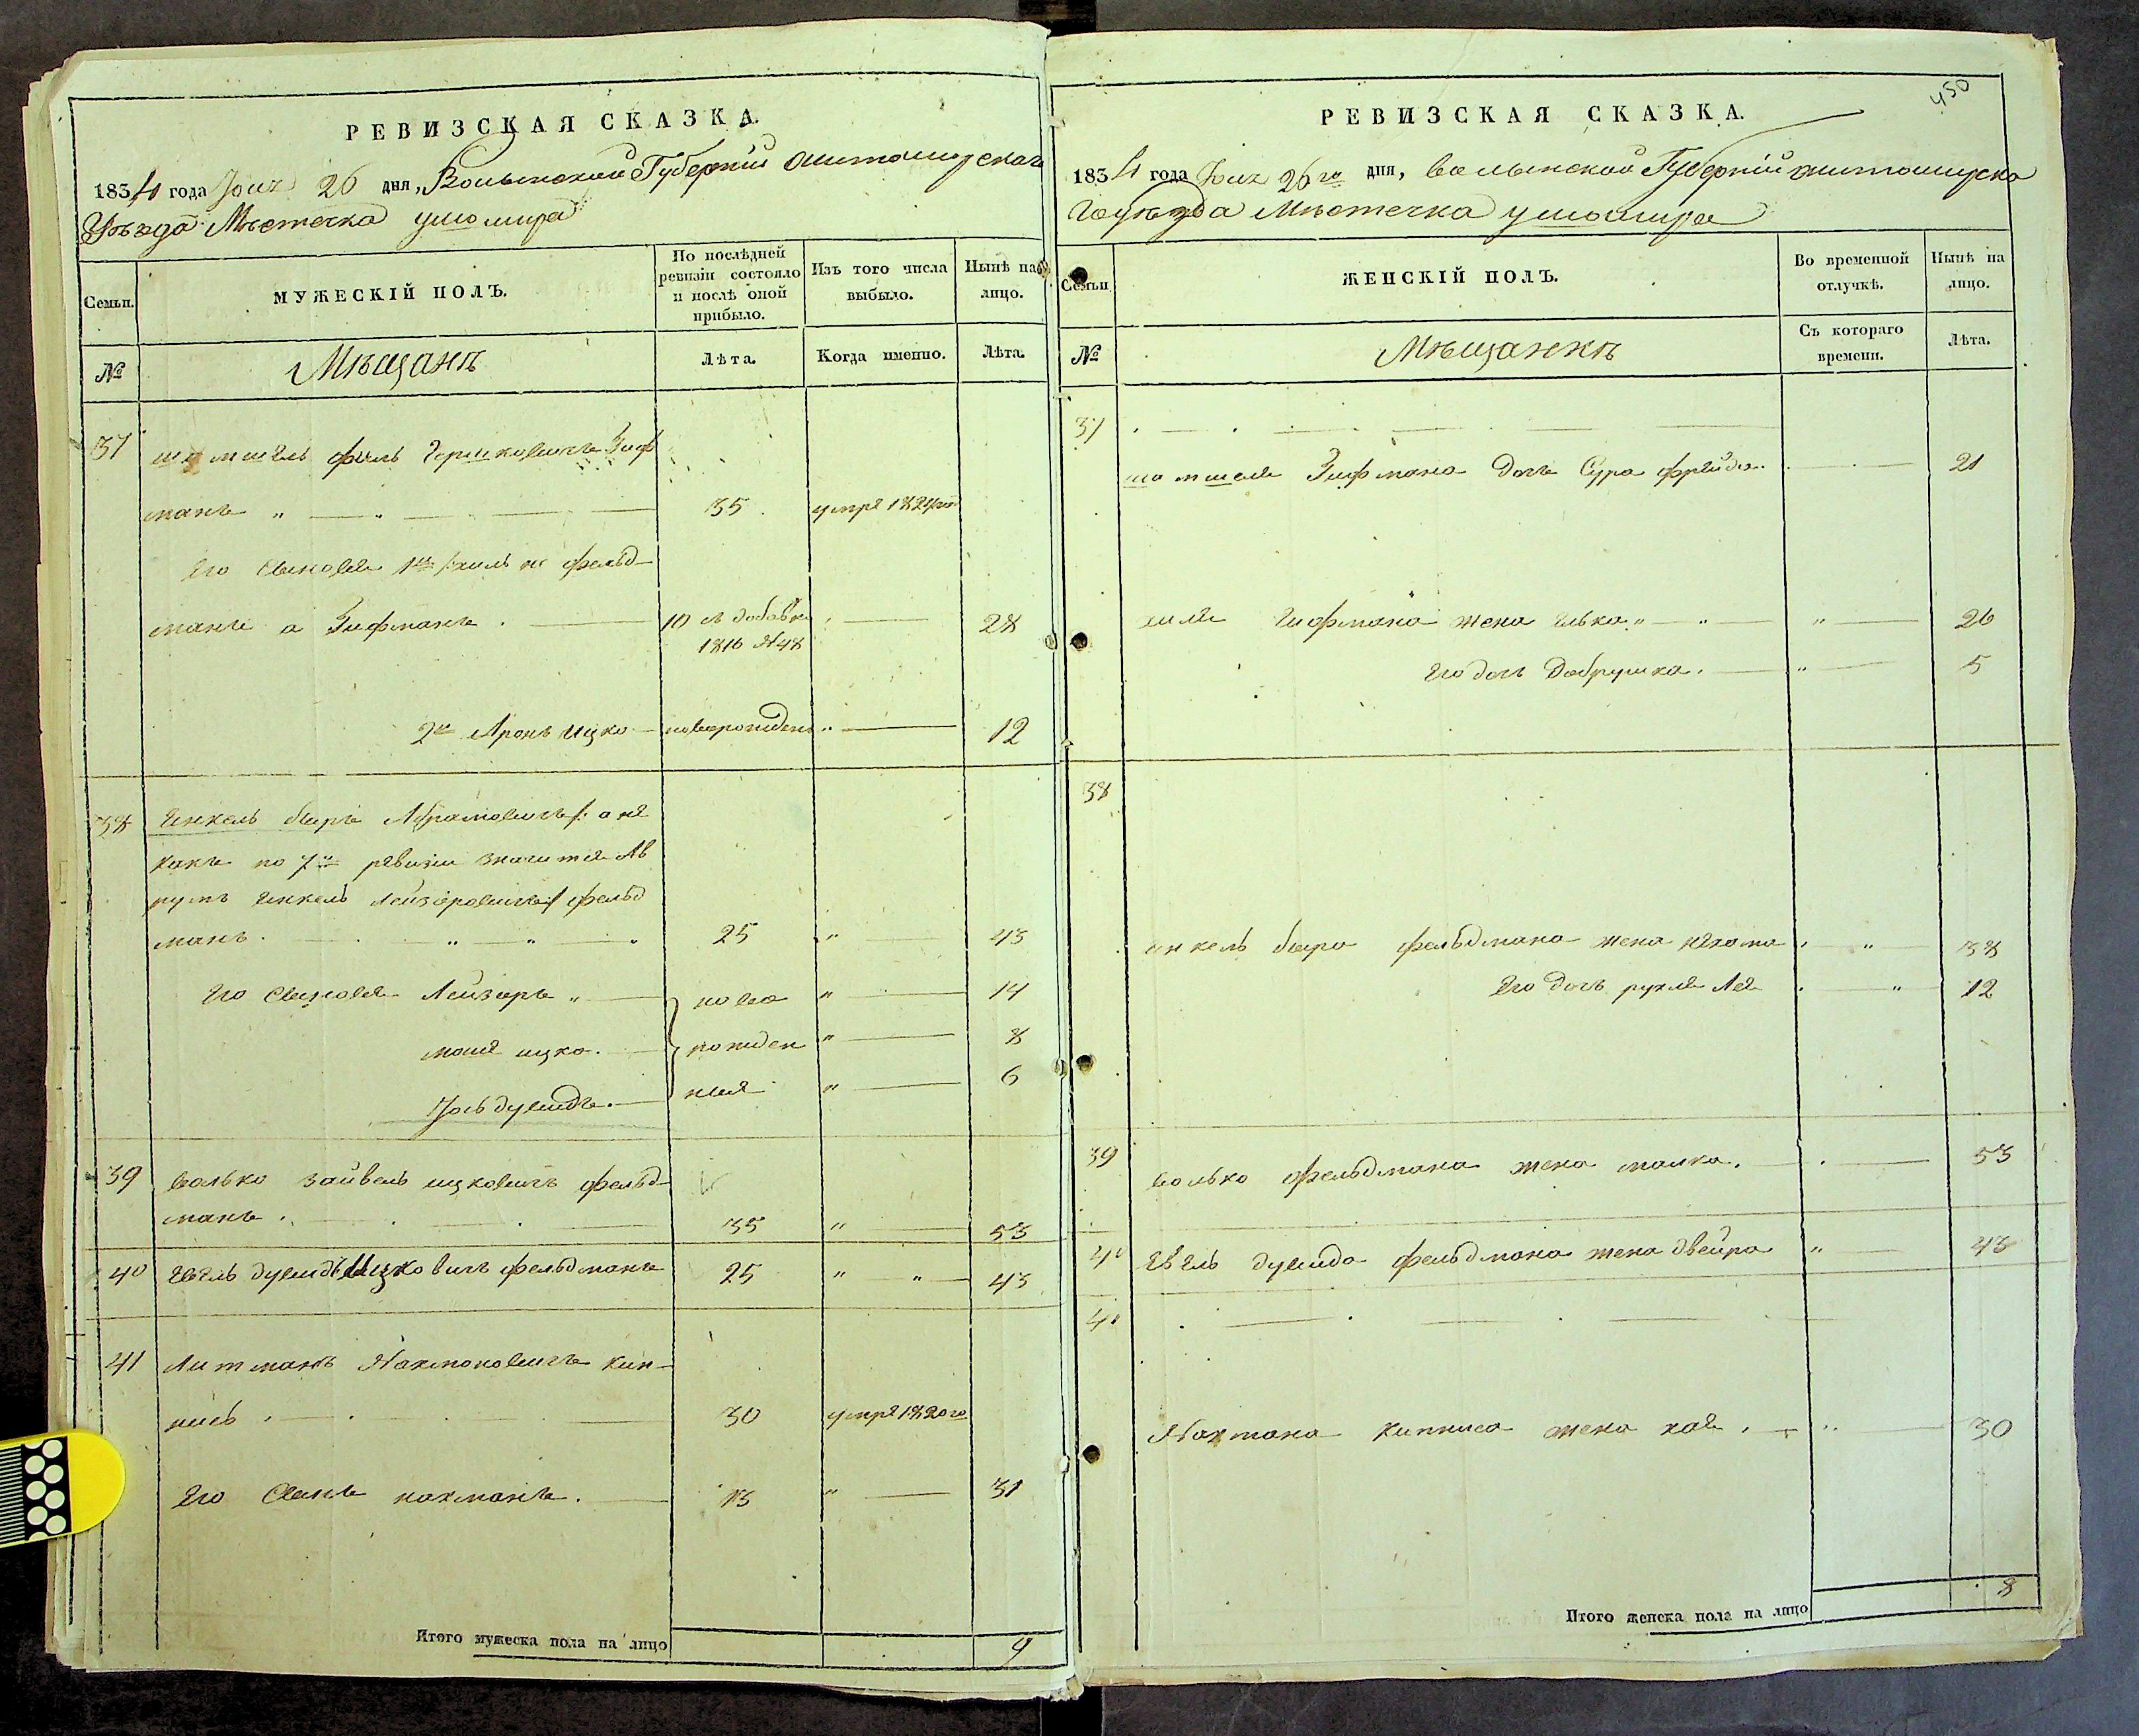 РЕВИЗСКАЯ СКАЗКА.
1834 года Юня 26 дня, Волынской Губернии Житомирскаго
Уѣзда Мѣстечка Ушомира
Семьи.
МУЖЕСКІЙ ПОЛЪ.
По послѣдней ревизіи состояло и послѣ оной прибыло.
Изъ того числа выбыло.
Нынѣ на лицо.
№
Мѣщанъ
Лѣта.
Когда именно.
Лѣта.
37
Филь Гершковичъ Зиф
манъ 35 умре 1824го
Его сыновья 1й Хиль не фельд-
манъ а Зифманъ 10 въ добавк. 28
1816 №48
2й Аронъ Ицко новорожденъ 12
38 Янкель Бер Абрамовичъ /: а не
какъ по 7й ревизіи значится Ав
румъ Янкель Лейзеровичъ :/ фельд
манъ 25 " 43
Его сыновья Лейзеръ " ново " 14
Моше Ицко рожден " 8
Дувидъ ныя " 6
39 Волько Зайвель Ицковичъ фельд-
манъ 35 " 53
40 Дувидъ Ицковичъ фельдманъ 25 " " 43
41 Литманъ Нахмановичъ Кип-
нисъ 30 умре 1820го
Его Сынъ нахманъ 13 " 31
Итого мужеска пола на лицо 9
450
РЕВИЗСКАЯ СКАЗКА.
1834 года Юня 26го дня, Волынской Губерніи Житомирска
го уѣзда Мѣстечка Ушомира
Семьи
ЖЕНСКІЙ ПОЛЪ.
Во временной отлучкѣ.
Нынѣ на лицо.
№
Мѣщанкъ
Съ котораго времени.
Лѣта.
37
Зифмана дочь Сура Фрейда 21
Хиля Зифмана жена " " 26
Его дочь Добрушка " 5
38
Янкель Бера фельдмана жена Нехома " 38
Его дочь Рухля Лея " 12
39 Волько фельдмана жена Малка 53
40 Дувида фельдмана жена Двейра " 43
41
Нахмана Кипниса жена Хая " 30
Итого женска пола на лицо 8